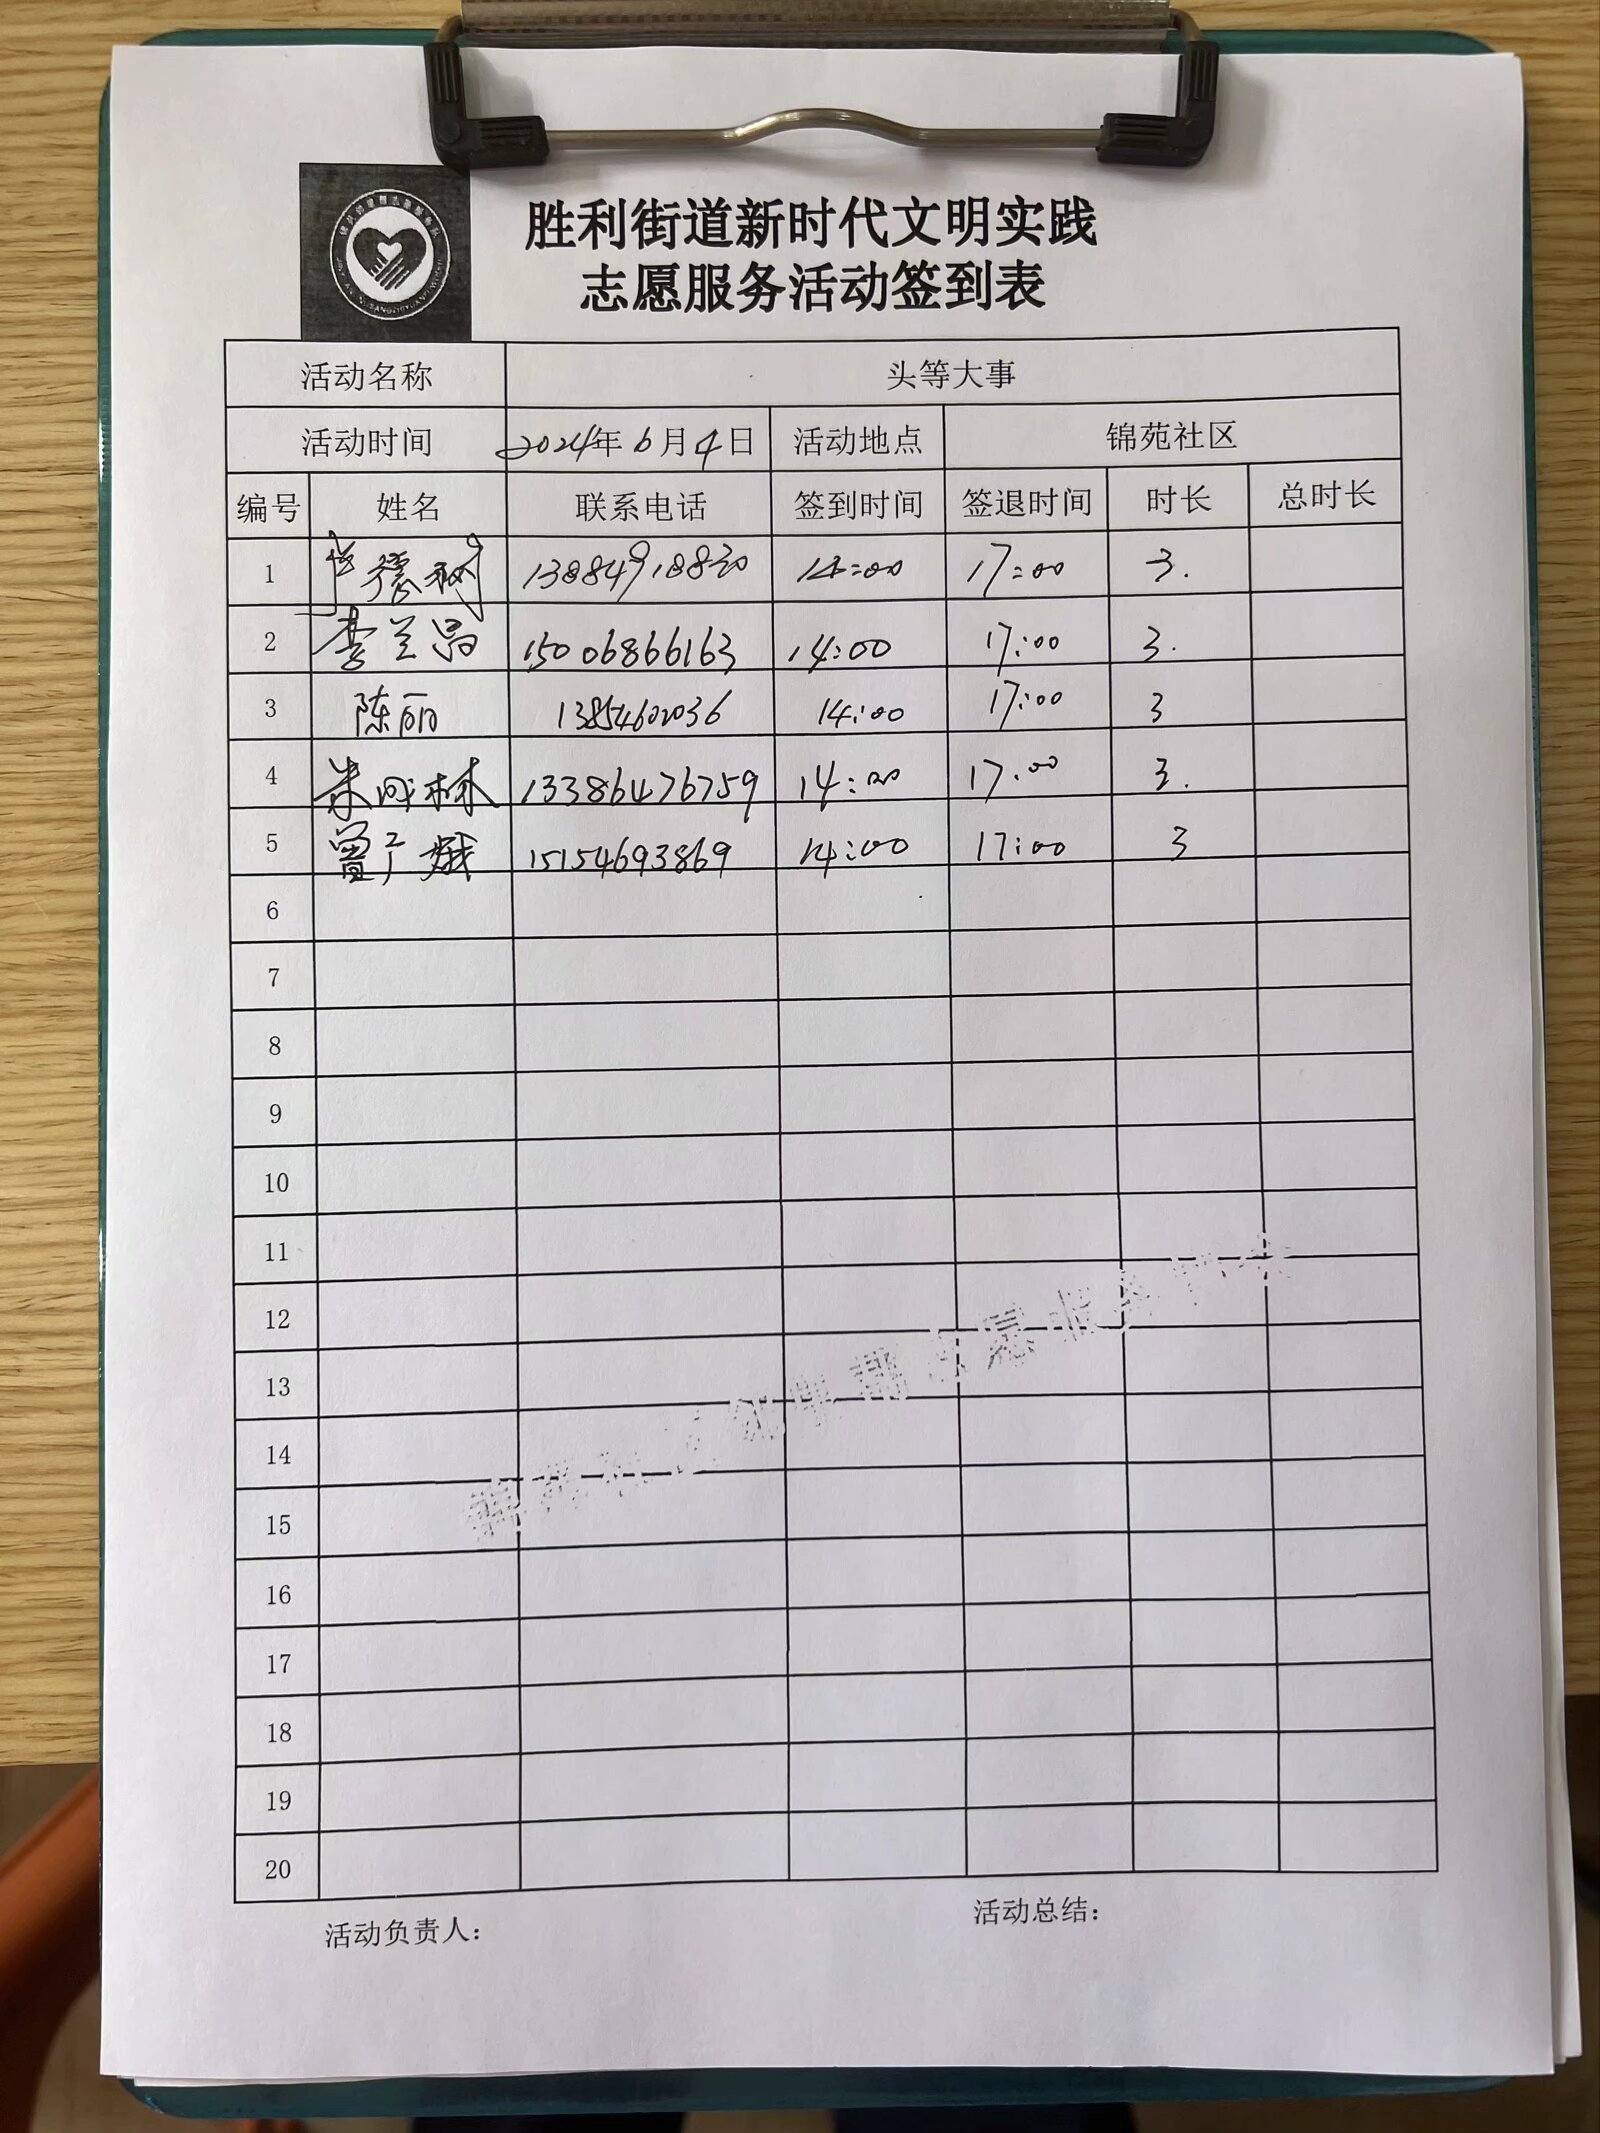 胜利街道新时代文明实践
志愿服务活动签到表
活动名称 头等大事
活动时间 2024年6月4日 活动地点 锦苑社区
编号 姓名 联系电话 签到时间 签退时间 时长 总时长
1 德树 13884918830 14:00 17:00 3.
2 李兰昌 15006866163 14:00 17:00 3.
3 陈丽 13854602036 14:00 17:00 3
4 朱成林 13386476759 14:00 17:00 3.
5 曾广娥 15154693869 14:00 17:00 3
6
7
8
9
10
11
12
13
14
15
16
17
18
19
20
活动负责人： 活动总结：